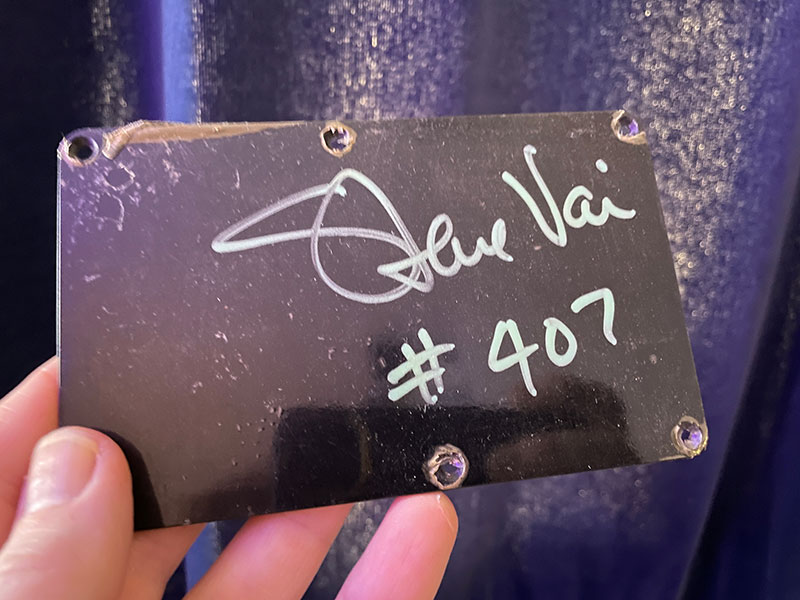 Steve Vai
# 407